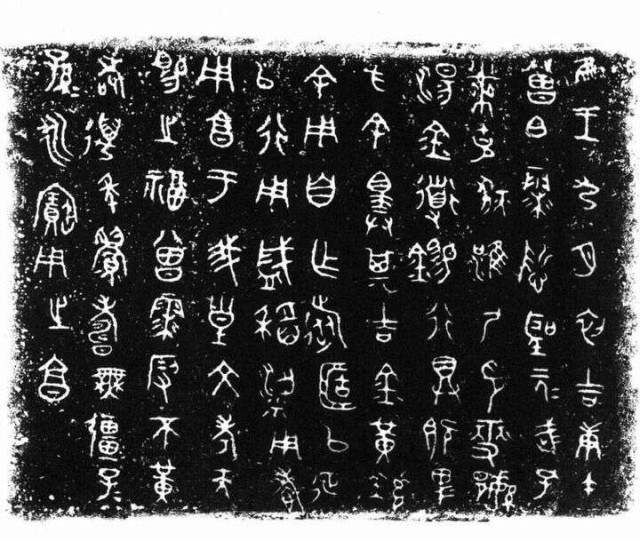 隹王九月初吉庚午
曾白霥哲聖元武孔
黹克狄淮夷印燮繁
湯金道錫行具既卑
方余擇其吉金黃鑪
余用自乍旅匡以征
以行用盛稻粱用孝
用享于我皇文考天
賜之福曾霥叚不黃
耇萬年眉壽無疆子
孫永寶用之享